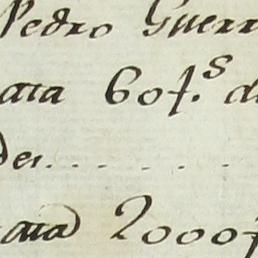 Pedro Guerr
ata 60f.s d
des......
ata 2000f